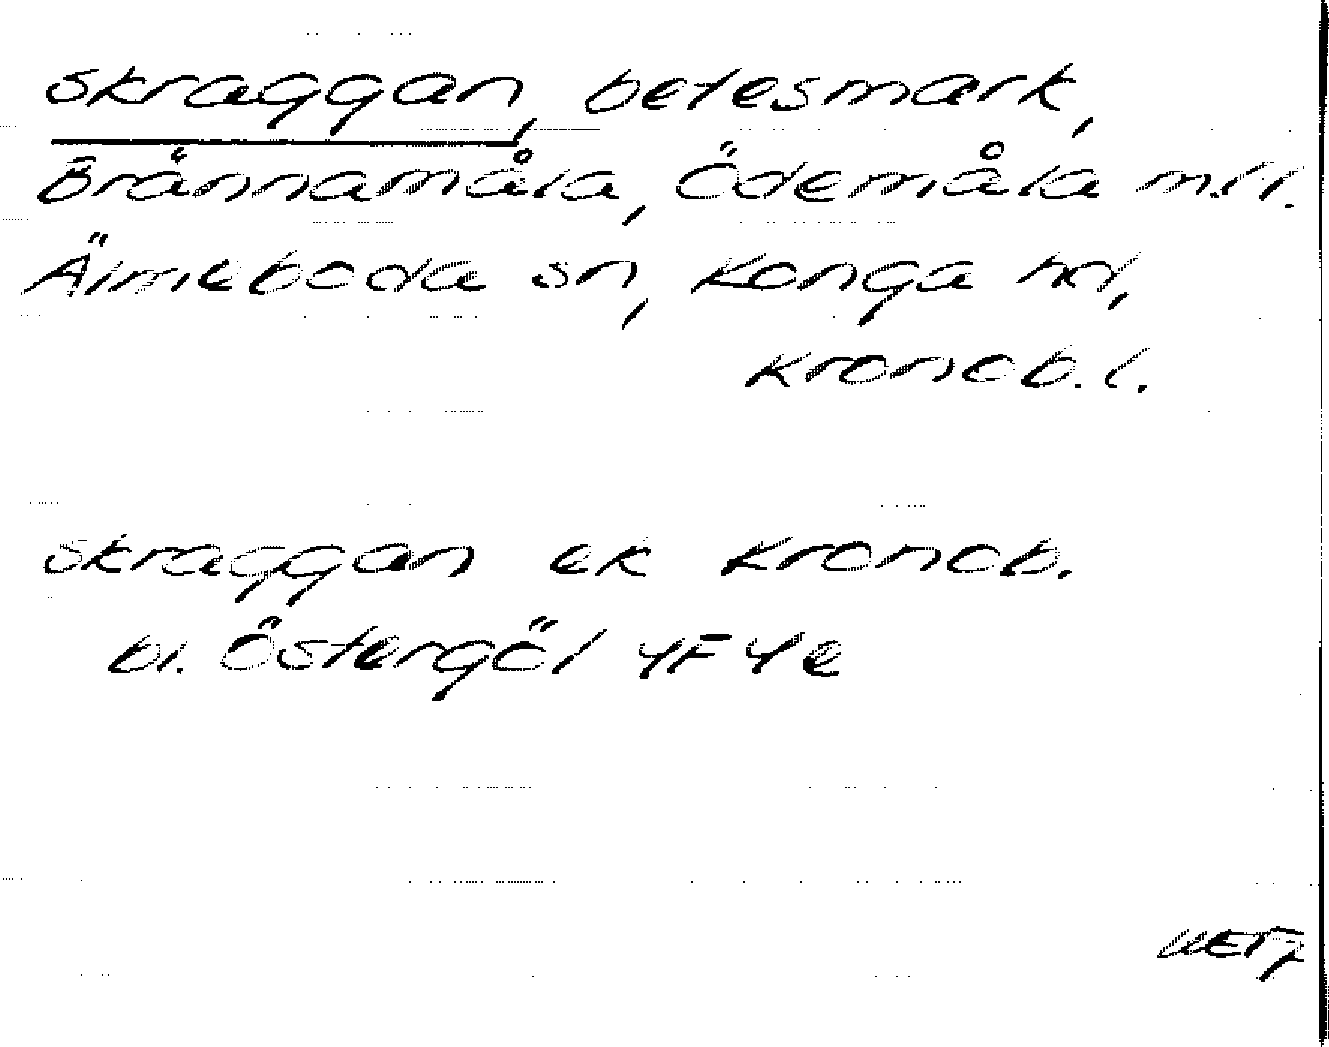 Skraggan, betesmark,
Brännamåla, Ödemåla m.fl.
Älmeboda sn, Konga hd,
Kronob. l.
Skraggan ek Kronob.
bl. Östergöl 4F 4e